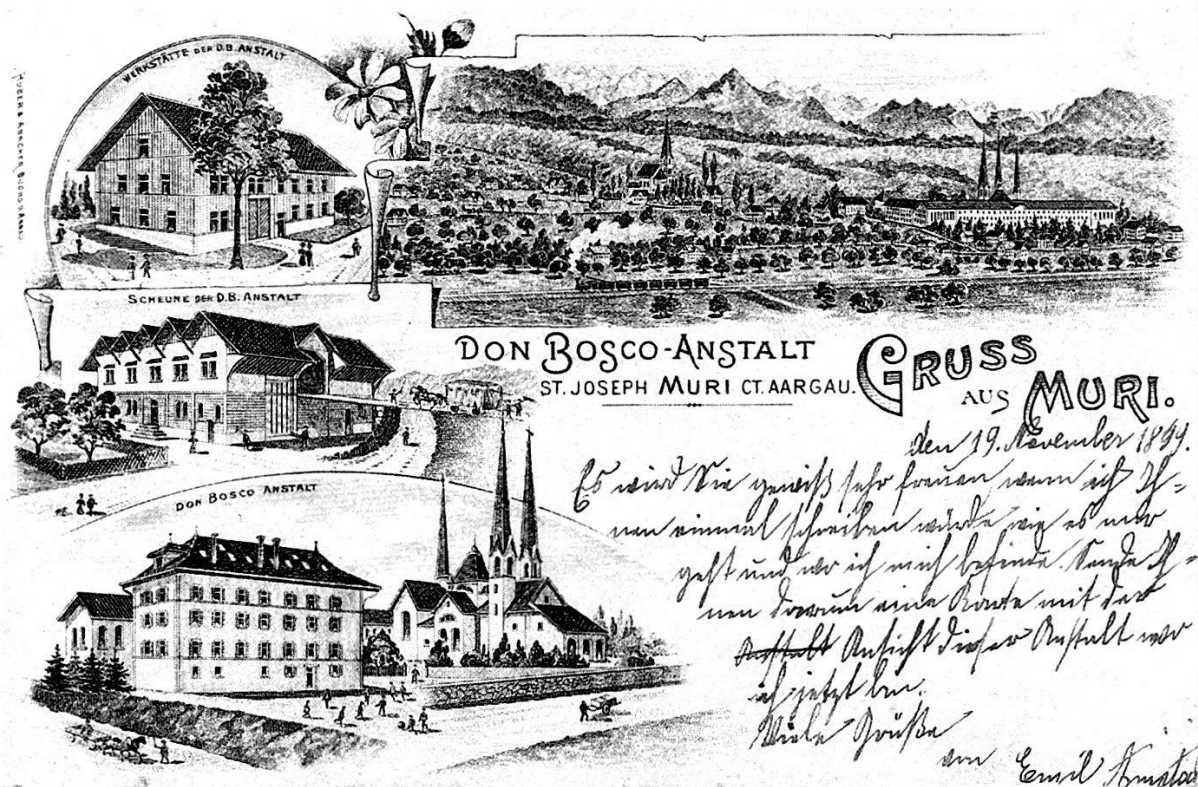 WERKSTÄTTE DER D.B. ANSTALT
SCHEUNE DER D.B. ANSTALT
DON BOSCO-ANSTALT
ST. JOSEPH MURI CT. AARGAU.
GRUSS
AUS MURI.
DON BOSCO ANSTALT
den 19. November 1899.
Es wird Sie gewiß sehr freuen wenn ich Ih=
nen einmal schreiben würde wie es mir
geht und wo ich mich befinde. Sende Ih=
nen darum eine Karte mit der
Anstalt Ansicht dieser Anstalt wo
ich jetzt bin.
Viele Grüße
von Emil